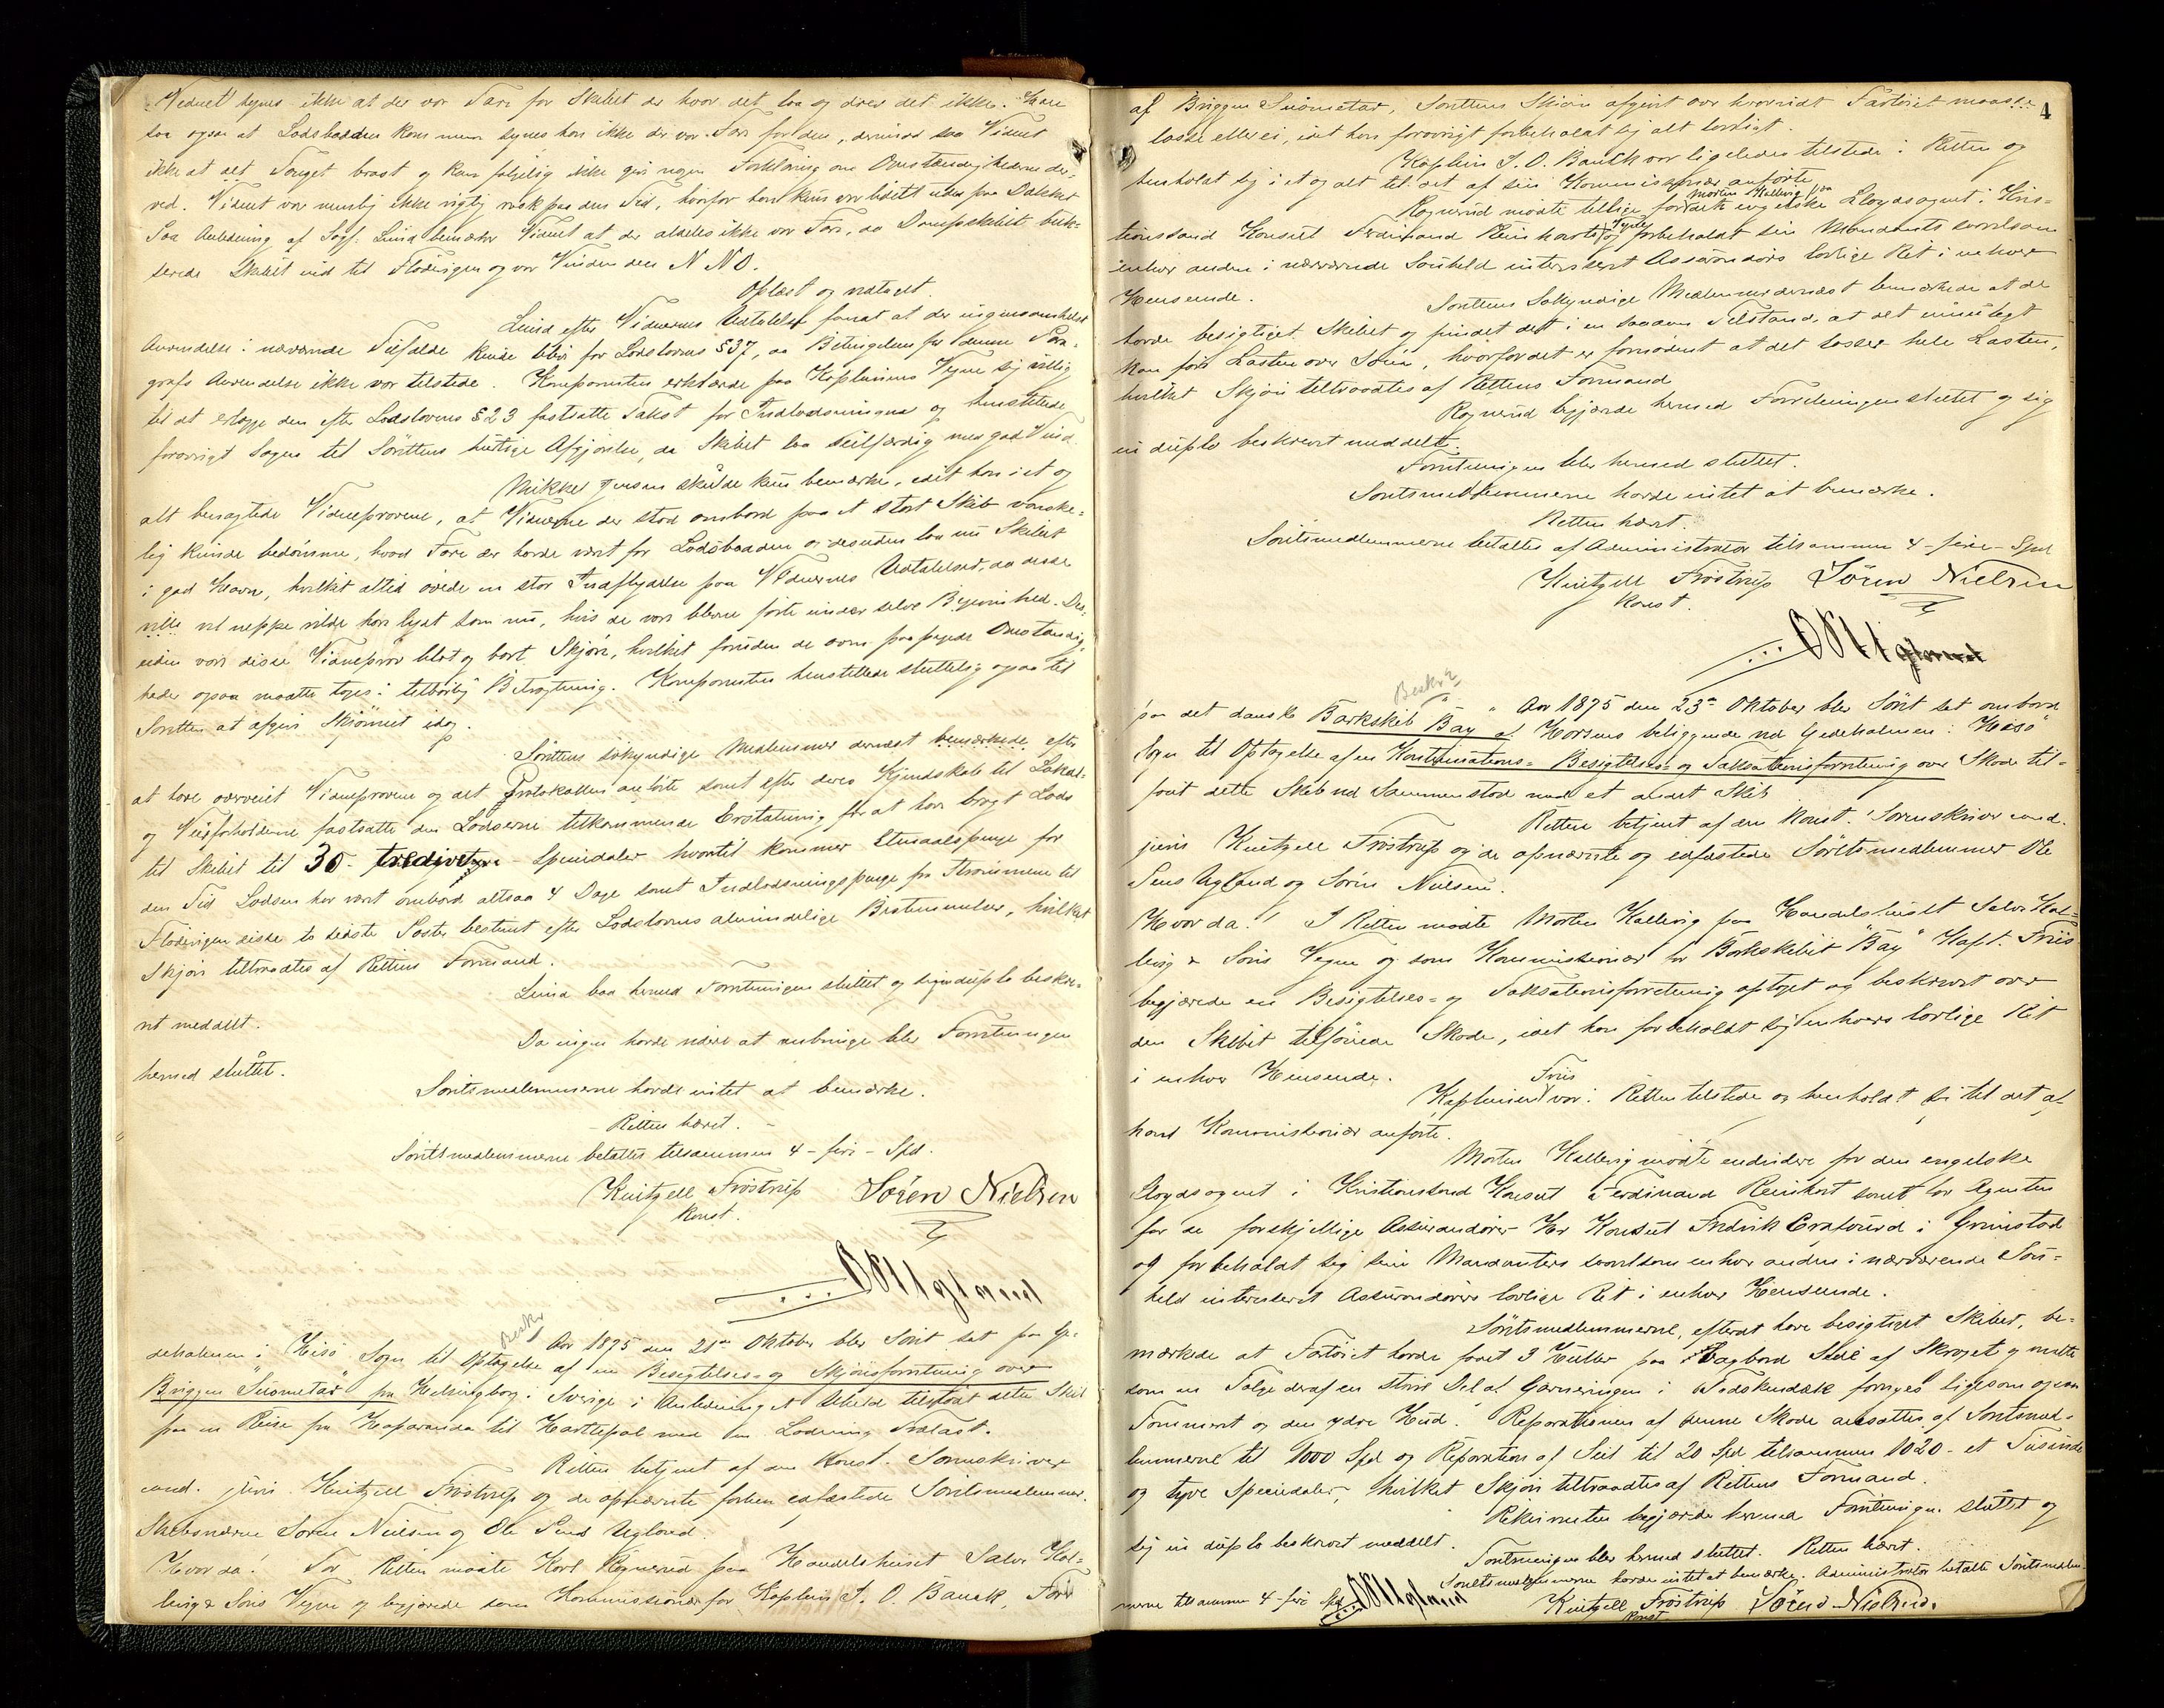 Vidnet synes ikke at der var Fare for Skibet der hvor det laa og drev det ikke. Han
saa ogsaa at Lodsbaaden kom men synes han ikke der var Fare for den, derimod saa Vidnet
ikke at det Touget brast og kan følgelig ikke give nogen Forklaring om Omstændighederne der-
ved. Vidnet var nemlig ikke rigtig rask paa den Tid, hvorfor han kun var lidt uden paa Dækket
Paa Anledning af Sagf. Lund bemærker Vidnet at der aldeles ikke var Fare, da Dampskibet buk-
serede Skibet ind til Flødevigen og var Vinden den N N O.
Oplæst og vedtaget.
Lund efter Vidnernes Udtalelse forat at der ingensomhelst
Anvendelse i nærværende Tilfælde kunde blive for Lodslovens § 37, da Betingelsen for denne Para-
grafs Anvendelse ikke var tilstede. Komparenten erklærede paa Kapteinens Vegne sig villig
til at erlægge den efter Lodslovens § 23 fastsatte Takst for Indlodsningen og henstillede
forøvrigt Sagen til Sørettens hurtige Afgjørelse, da Skibet laa seilfærdig med god Vind.
Mikkel Jensen skulde kun bemærke, idet han i et og
alt benægtede Vidneprovene, at Vidnerne der stod ombord paa et stort Skib vanske-
lig kunde bedømme, hvad Fare der havde været for Lodsbaaden og desuden laa nu Skibet
i god Havn, hvilket altid øvede en stor Indflydelse paa Vidnernes Udtalelser, da disse
vel neppe vilde have lydt som nu, hvis de vare blevne førte under selve Begivenhed. Des-
uden vare disse Vidneprov blot og bart Skjøn, hvilket foruden de oven paapegede Omstændig-
heder ogsaa maatte tages i tilbørlig Betragtning. Komparenten henstillede sluttelig ogsaa til
Søretten at afgive Skjønnet idag.
Sørettens søkyndige Medlemmer dernæst bemærkede efter
at have overveiet Vidneprovene og det Protokollen anførte samt efter deres Kjendskab til Lokal-
og Veirforholdene fastsatte den Lodserne tilkommende Erstatning for at have bragt Lods
til Skibet til 30 - tredive - Speciedaler hvortil kommer Etmaalspenge for
den Tid Lodsen har været ombord altsaa 4 Dage samt Indlodsningspenge fra Strømmene til
Flødevigen disse to sidste Poster bestemt efter Lodslovens almindelige Bestemmelser, hvilket
Skjøn tiltraadtes af Rettens Formand.
Lund bad hermed Forretningen sluttet og sig in duplo beskre-
vet meddelt.
Da ingen havde videre at anbringe blev Forretningen
hermed sluttet.
Søretsmedlemmerne havde intet at bemærke.
Retten hævet.
Søretsmedlemmerne betaltes tilsammen 4 - fire - Spd.
Knitzell Frøstrup Søren Nielsen
konst.
O J Ugland
Beskr
Aar 1875 den 21de Oktober blev Søret sat paa Ge-
deholmen i Hisø Sogn til Optagelse af en Besigtelses- og Skjønsforretning over
Briggen "Suometar" fra Helsingborg i Sverige i Anledning af Skade tilføiet dette Skib
paa en Reise fra Haparanda til Hartlepol med en Ladning Trælast.
Retten betjent af den konst. Sorenskriver
cand. juris Knitzell Frøstrup og de opnævnte forhen edfæstede Søretsmedlemmer
Skibsrederne Søren Nielsen og Ole Jens Ugland.
Hvor da! For Retten mødte Karl Rognerud paa Handelshuset Salve Kal-
levig & Søns Vegne og begjærede som Kommissionær for Kaptein J. O. Bauck, Fører
4
af Briggen Suometar, Sørettens Skjøn afgivet over hvorvidt Fartøiet maatte
losse eller ei, idet han forøvrigt forbeholdt sig alt lovligt.
Kaptein J. O. Bauck var ligeledes tilstede i Retten og
henholdt sig i et og alt til det af sin Kommissionær anførte
Morten Kallevig paa
Rognerud mødte tillige for den engelske Lloydsagent i Kris-
Vegne
tianssand Konsul Ferdinand Reinhardt og forbeholdt sin Mandants saavelsom
enhver anden i nærværende Søuheld interesseret Assurandørs lovlige Ret i enhver
Henseende.
Sørettens Søkyndige Medlemmer dernæst bemærkede at de
havde besigtiget Skibet og fundet det i en saadan Tilstand, at det umuligt
kan føre Lasten over Søen, hvorfor det er fornødent at det losser hele Lasten,
hvilket Skjøn tiltraadtes af Rettens Formand
Rognerud begjærede hermed Forretningen sluttet og sig
in duplo beskrevet meddelt.
Forretningen blev hermed sluttet.
Søretsmedlemmerne havde intet at bemærke.
Retten hævet.
Søretsmedlemmerne betaltes af Administrator tilsammen 4 - fire - Spd
Knitzell Frøstrup Søren Nielsen
konst.
O J Ugland
Beskr
Aar 1875 den 23de Oktober blev Søret sat ombord
paa det danske Barkskib "Bay" af Horsens beliggende ved Gedeholmen i Hisø
Sogn til Optagelse af en Kontinuations- Besigtelses- og Taksationsforretning over Skade til-
føiet dette Skib ved Sammenstød med et andet Skib
Retten betjent af den konst. Sorenskriver cand.
juris Knitzell Frøstrup og de opnævnte og edfæstede Søretsmedlemmer Ole
Jens Ugland og Søren Nielsen.
Hvor da! I Retten mødte Morten Kallevig paa Handelshuset Salve Kal-
levig & Søns Vegne og som Kommissionær for Barkskibet "Bay" Kapt. Friis
begjærede en Besigtelses- og Taksationsforretning optaget og beskrevet over
den Skibet tilføiede Skade, idet han forbeholdt sig enhvers lovlige Ret
i enhver Henseende.
Friis
Kapteinen var i Retten tilstede og henholdt sig til det af
hans Kommissionær anførte.
Morten Kallevig mødte endvidere for den engelske
Lloydsagent i Kristianssand Konsul Ferdinand Reinhart samt for Agenten
for de forskjellige Assurandører Hr Konsul Fredrik Crawfurd i Grimstad
og forbeholdt sig sine Mandanters saavelsom enhver anden i nærværende Søu-
held interesseret Assurandørers lovlige Ret i enhver Henseende.
Søretsmedlemmerne, efterat have besigtiget Skibet, be-
mærkede at Fartøiet havde faaet 3 Huller paa Bagbord Side af Skroget og maatte
som en Følge deraf en større Del af Garneringen i Tvedskendæk fornyes ligesom ogsaa
Tømmeret og den ydre Hud. Reparationen af denne Skade ansattes af Søretsmed-
lemmerne til 1000 Spd og Reparation af Seil til 20 Spd tilsammen 1020 - et Tusinde
og tyve Speciedaler, hvilket Skjøn tiltraadtes af Rettens Formand.
Rekvirenten begjærede hermed Forretningen sluttet og
sig in duplo beskrevet meddelt.
Forretningen blev hermed sluttet. Retten hævet.
Søretsmedlemmerne havde intet at bemærke. Administrator betalte Søretsmedlem-
merne tilsammen 4 - fire Spd O J Ugland
Knitzell Frøstrup Søren Nielsen.
konst.